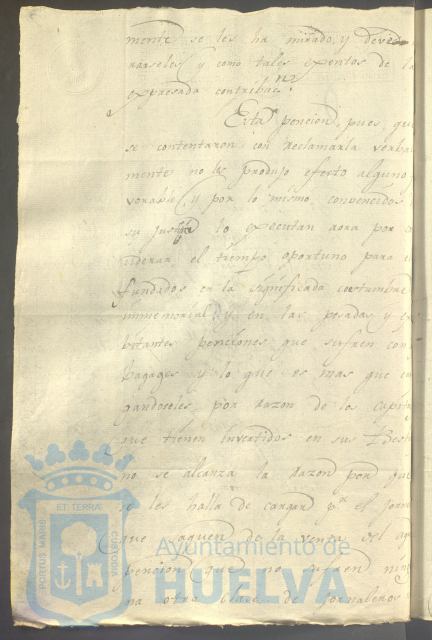 mente se les ha mirado, y deve mi
rarseles, y como tales exentos de la
expresada contribac.n
Esta pencion, pues que
se contentaron con reclamarla verbal
mente no les produjo efecto alguno
vorable, y por lo mismo, convencidos
su justicia lo executan aora por con
siderar el tiempo oportuno para
fundados en la significada costumbre
inmemorial, y en las pesadas y ex
bitantes penciones que sufren con
bagages y lo que es mas que
gandoseles por razon de los capita
que tienen invertidos en sus Besti
no se alcanza la razon por que
se les halla de cargar p.r el jorn
que aquen de la venta del
pencion que no sufren nin
na otra clase de jornaleros
ET TERRA
PORTUS MARIS
CUSTODIA
Ayuntamiento de
HUELVA